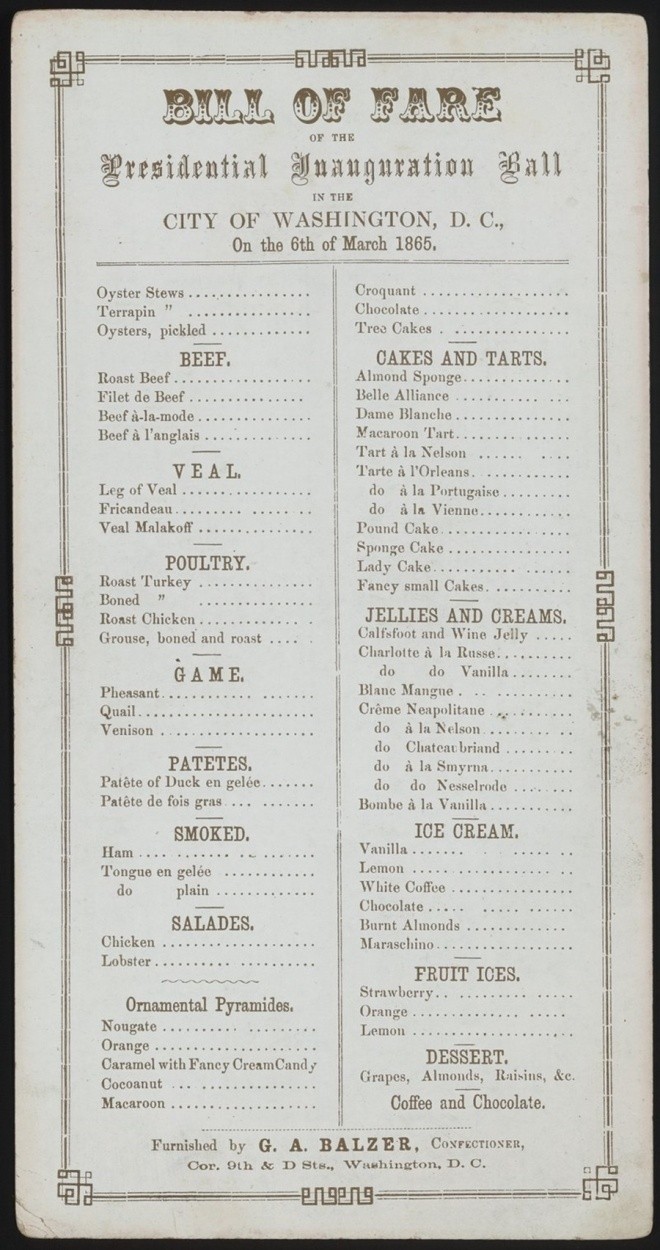 BILL OF FARE
OF THE
Presidential Inauguration Ball
IN THE
CITY OF WASHINGTON, D. C.,
On the 6th of March 1865.
Oyster Stews
Terrapin "
Oysters, pickled
BEEF.
Roast Beef
Filet de Beef
Beef à-la-mode
Beef à l'anglais
VEAL.
Leg of Veal
Fricandeau
Veal Malakoff
POULTRY.
Roast Turkey
Boned "
Roast Chicken
Grouse, boned and roast
GAME.
Pheasant
Quail
Venison
PATETES.
Patête of Duck en gelée
Patête de fois gras
SMOKED.
Ham
Tongue en gelée
do plain
SALADES.
Chicken
Lobster
Ornamental Pyramides.
Nougate
Orange
Caramel with Fancy Cream Candy
Cocoanut
Macaroon
Croquant
Chocolate
Tree Cakes
CAKES AND TARTS.
Almond Sponge
Belle Alliance
Dame Blanche
Macaroon Tart
Tart à la Nelson
Tarte à l'Orleans
do à la Portugaise
do à la Vienne
Pound Cake
Sponge Cake
Lady Cake
Fancy small Cakes
JELLIES AND CREAMS.
Calfsfoot and Wine Jelly
Charlotte à la Russe
do do Vanilla
Blanc Mangue
Crême Neapolitane
do à la Nelson
do Chateaubriand
do à la Smyrna
do do Nesselrode
Bombe à la Vanilla
ICE CREAM.
Vanilla
Lemon
White Coffee
Chocolate
Burnt Almonds
Maraschino
FRUIT ICES.
Strawberry
Orange
Lemon
DESSERT.
Grapes, Almonds, Raisins, &c.
Coffee and Chocolate.
Furnished by G. A. BALZER, CONFECTIONER,
Cor. 9th & D Sts., Washington, D. C.